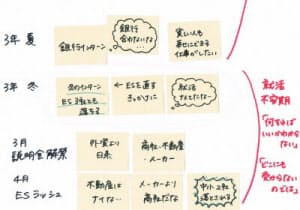 3年 夏
銀行インターン
銀行
合わないな…
貧しい人も
幸せにできる
仕事がしたい
3年 冬
冬のインターン
ES 3社とも
落ちる
← ESを直す
きっかけに
就活
なんてたな…
就活
不安期
「何すれば
いいかわから
ない」
「どこにも
受からない
のでは」
3月
説明会解禁
外資より
日系
商社・不動産
・メーカー
4月
ESラッシュ
不動産は
ナイな…
メーカーより
商社だな
中小2社
落とされる